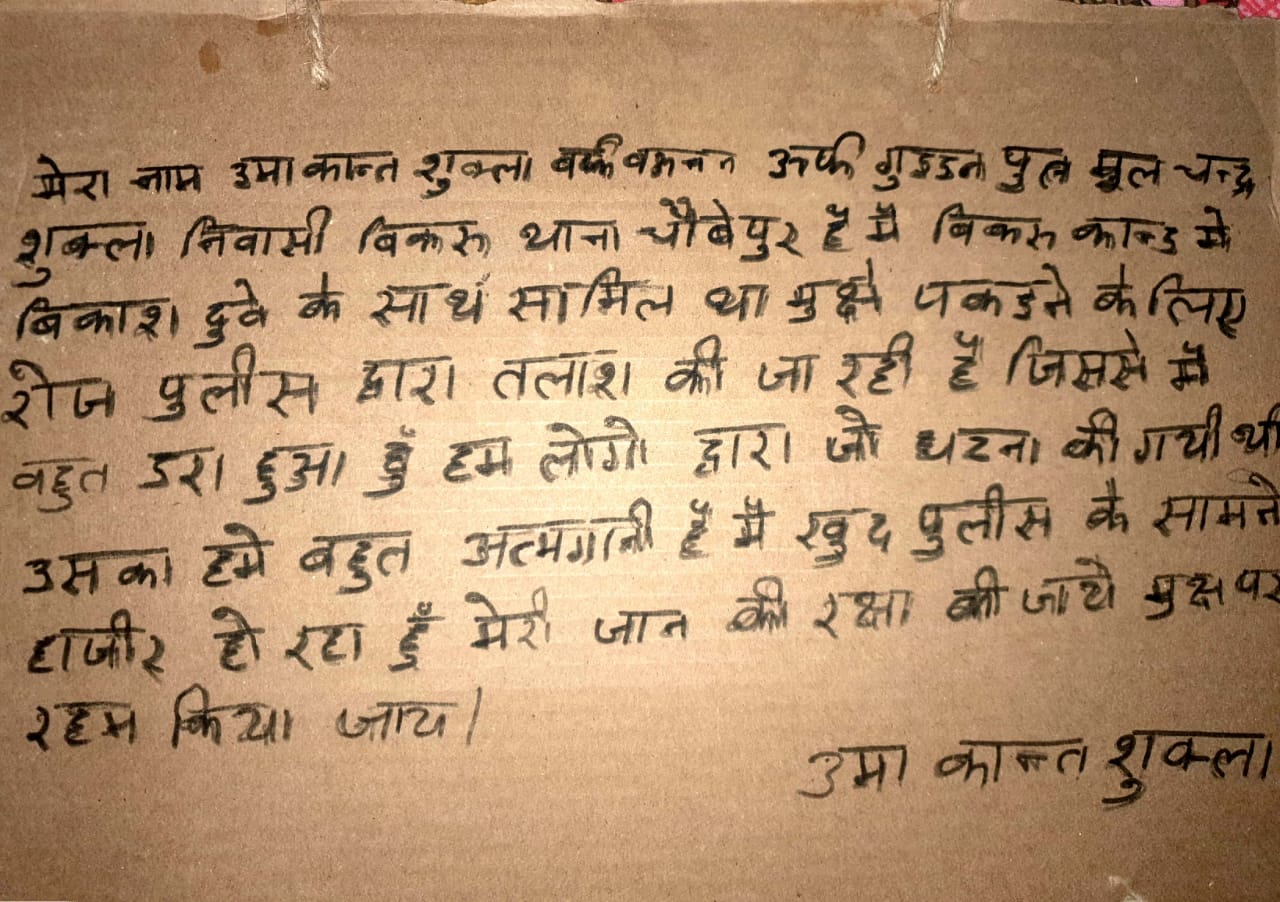 मेरा नाम उमाकान्त शुक्ला उर्फ गुडडन पुत्र मूल चन्द्र
शुक्ला निवासी बिकरू थाना चौबेपुर है मै बिकरू कान्ड मे
बिकाश दुवे के साथ सामिल था मुक्षे पकडने के लिए
रोज पुलीस द्वारा तलाश की जा रही है जिससे मै
बहुत डरा हुआ हुँ हम लोगो द्वारा जो घटना की गयी थी
उसका हमे बहुत अत्मगानी है मै खुद पुलीस के सामने
हाजीर हो रहा हुँ मेरी जान की रक्षा की जाये मुक्ष पर
रहम किया जाय।
उमा कान्त शुक्ला